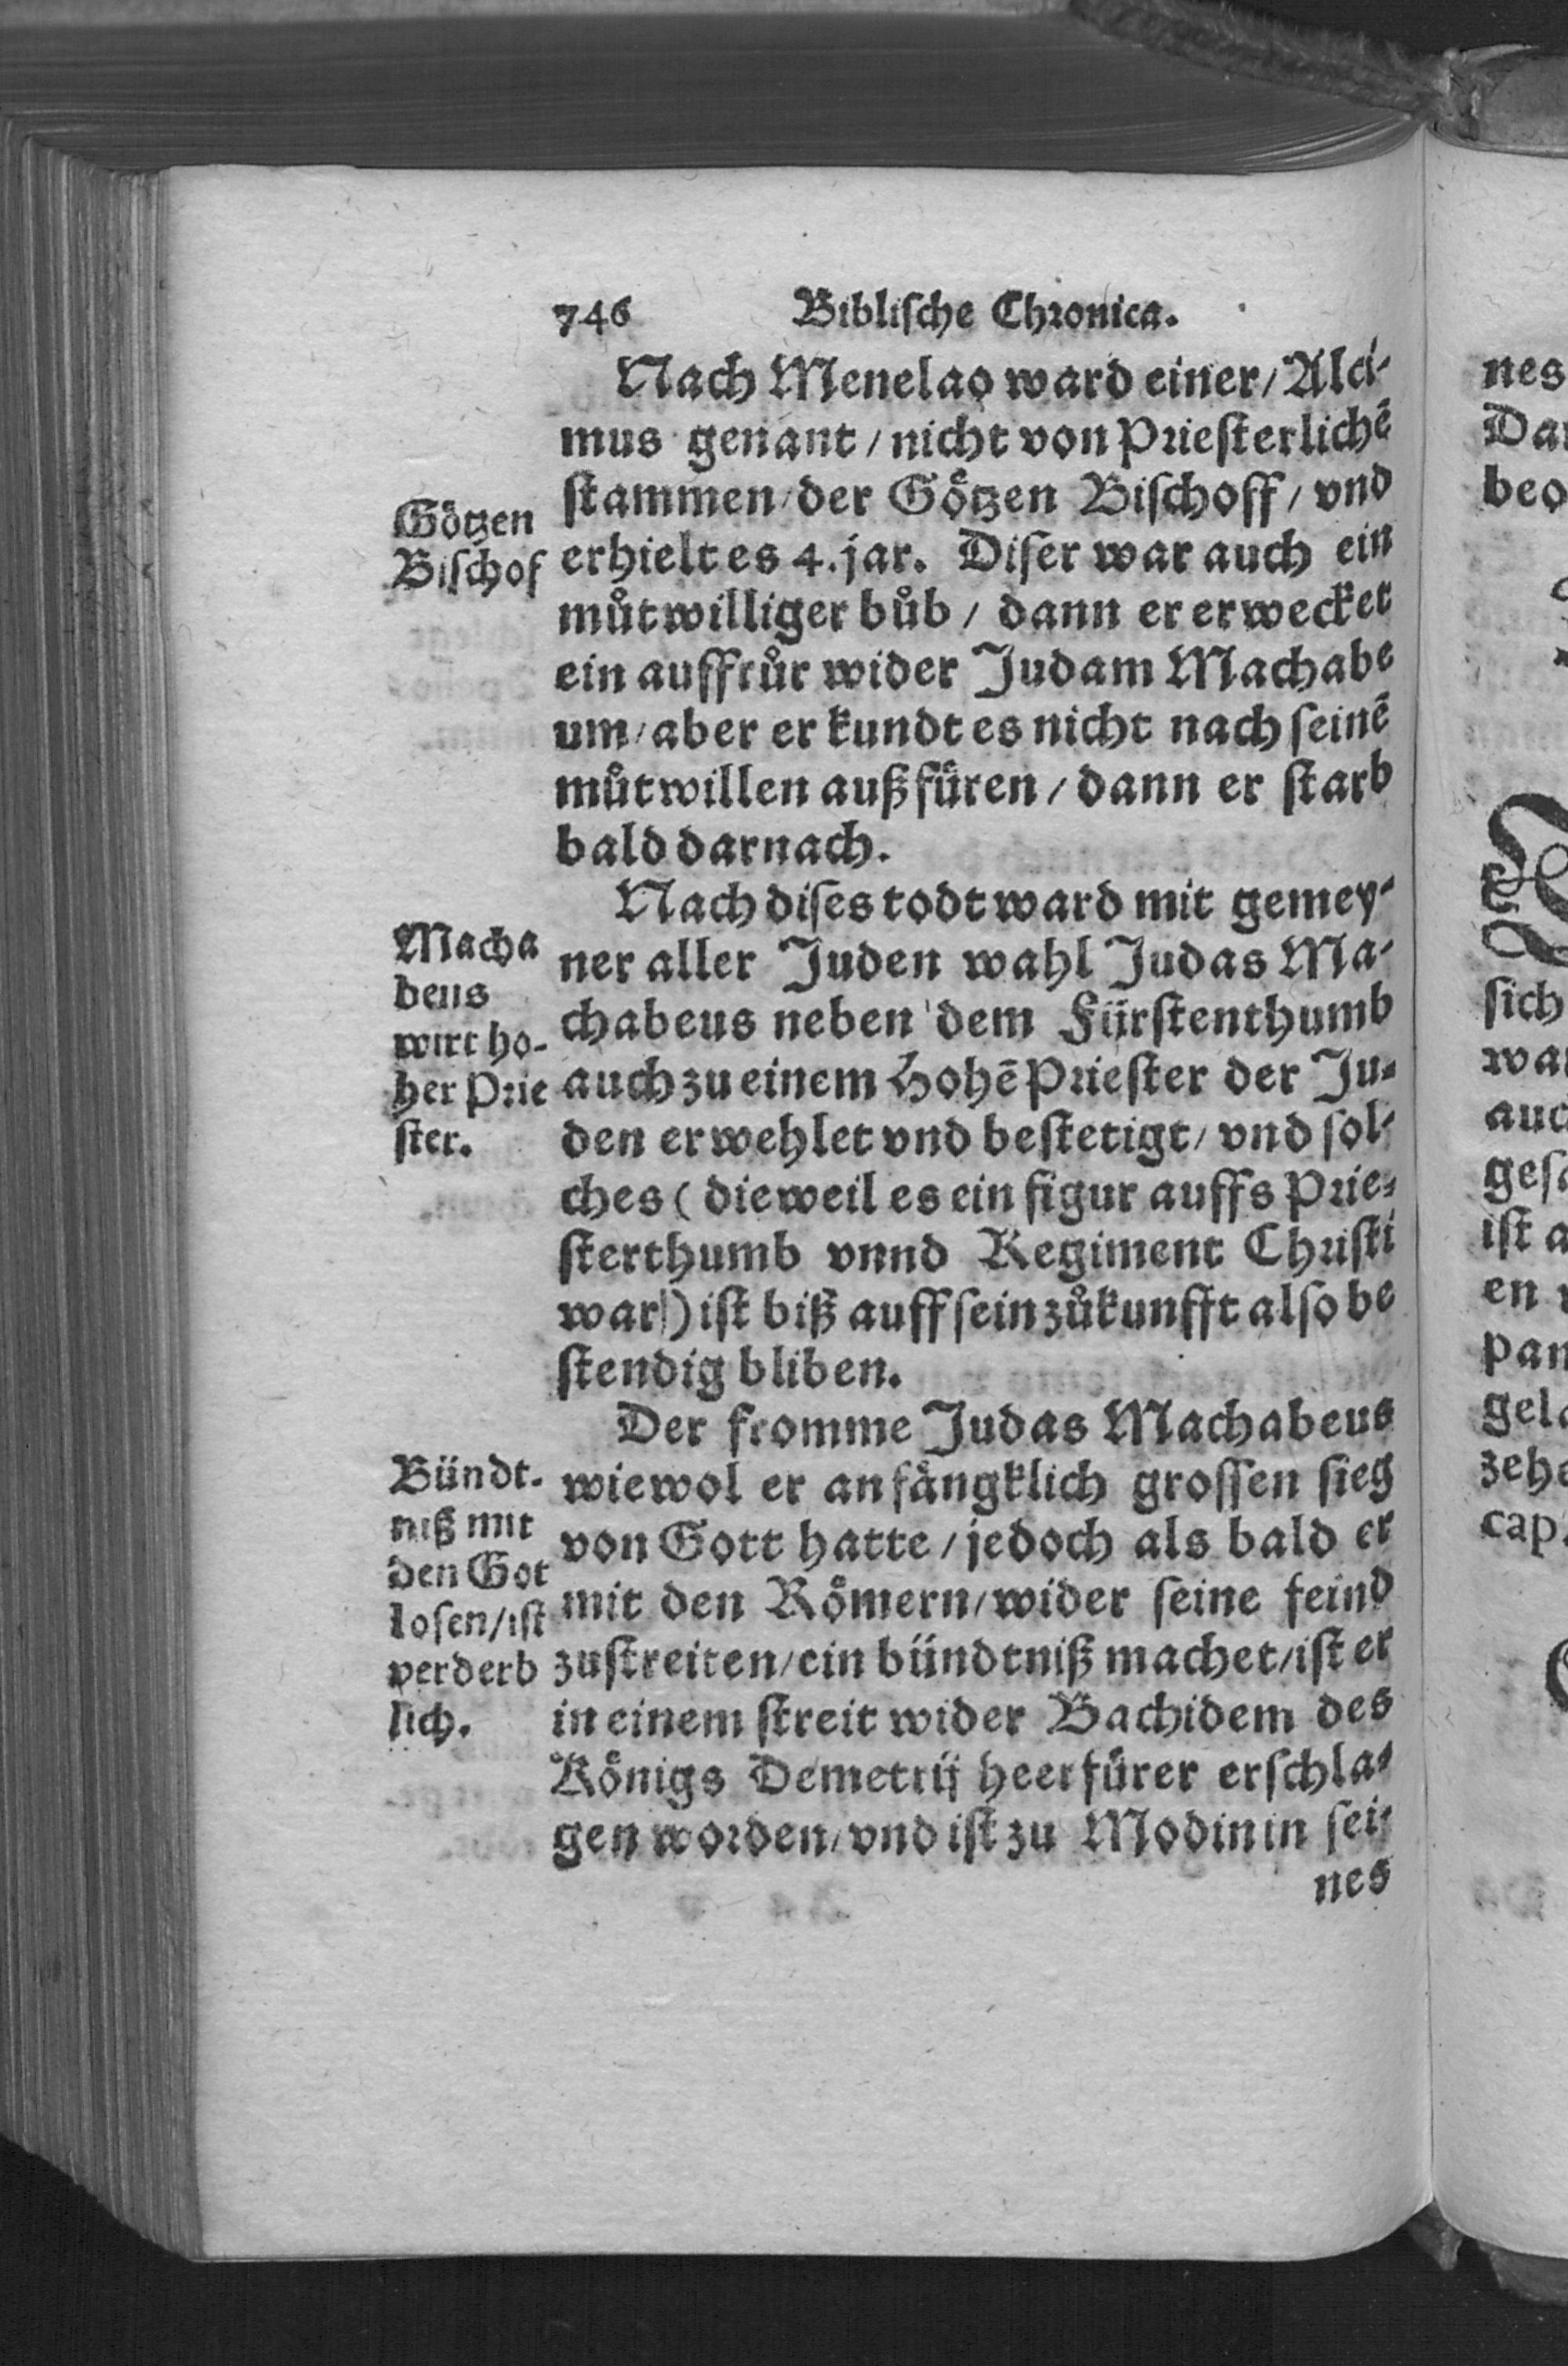 746 Biblische Chronica.
Nach Menelao ward einer/Alci-
mus genant/nicht von Priesterlichē
stammen/der Götzen Bischoff/vnd
erhielt es 4. jar. Diser war auch ein
můtwilliger bůb/dann er erwecket
ein auffrůr wider Judam Machabe
um/aber er kundt es nicht nach seinē
můtwillen außfüren/dann er starb
bald darnach.
Götzen
Bischof
Nach dises todt ward mit gemey-
ner aller Juden wahl Judas Ma-
chabeus neben dem Fürstenthumb
auch zu einem Hohē Priester der Ju-
den erwehlet vnd bestetigt/vnd sol-
ches (dieweil es ein figur auffs Prie-
sterthumb vnnd Regiment Christi
war) ist biß auff sein zůkunfft also be
stendig bliben.
Macha
beus
wirt ho-
her Prie
ster.
Der fromme Judas Machabeus
wiewol er anfängklich grossen sieg
von Gott hatte/jedoch als bald er
mit den Römern/wider seine feind
zustreiten/ein bündtniß machet/ist er
in einem streit wider Bachidem des
Königs Demetrij heerfürer erschla-
gen worden/vnd ist zu Modin in sei-
nes
Bündt-
niß mit
den Got
losen/ist
verderb
lich.
nes
beo
sich
ist a
en
pan
gela
zehe
cap.